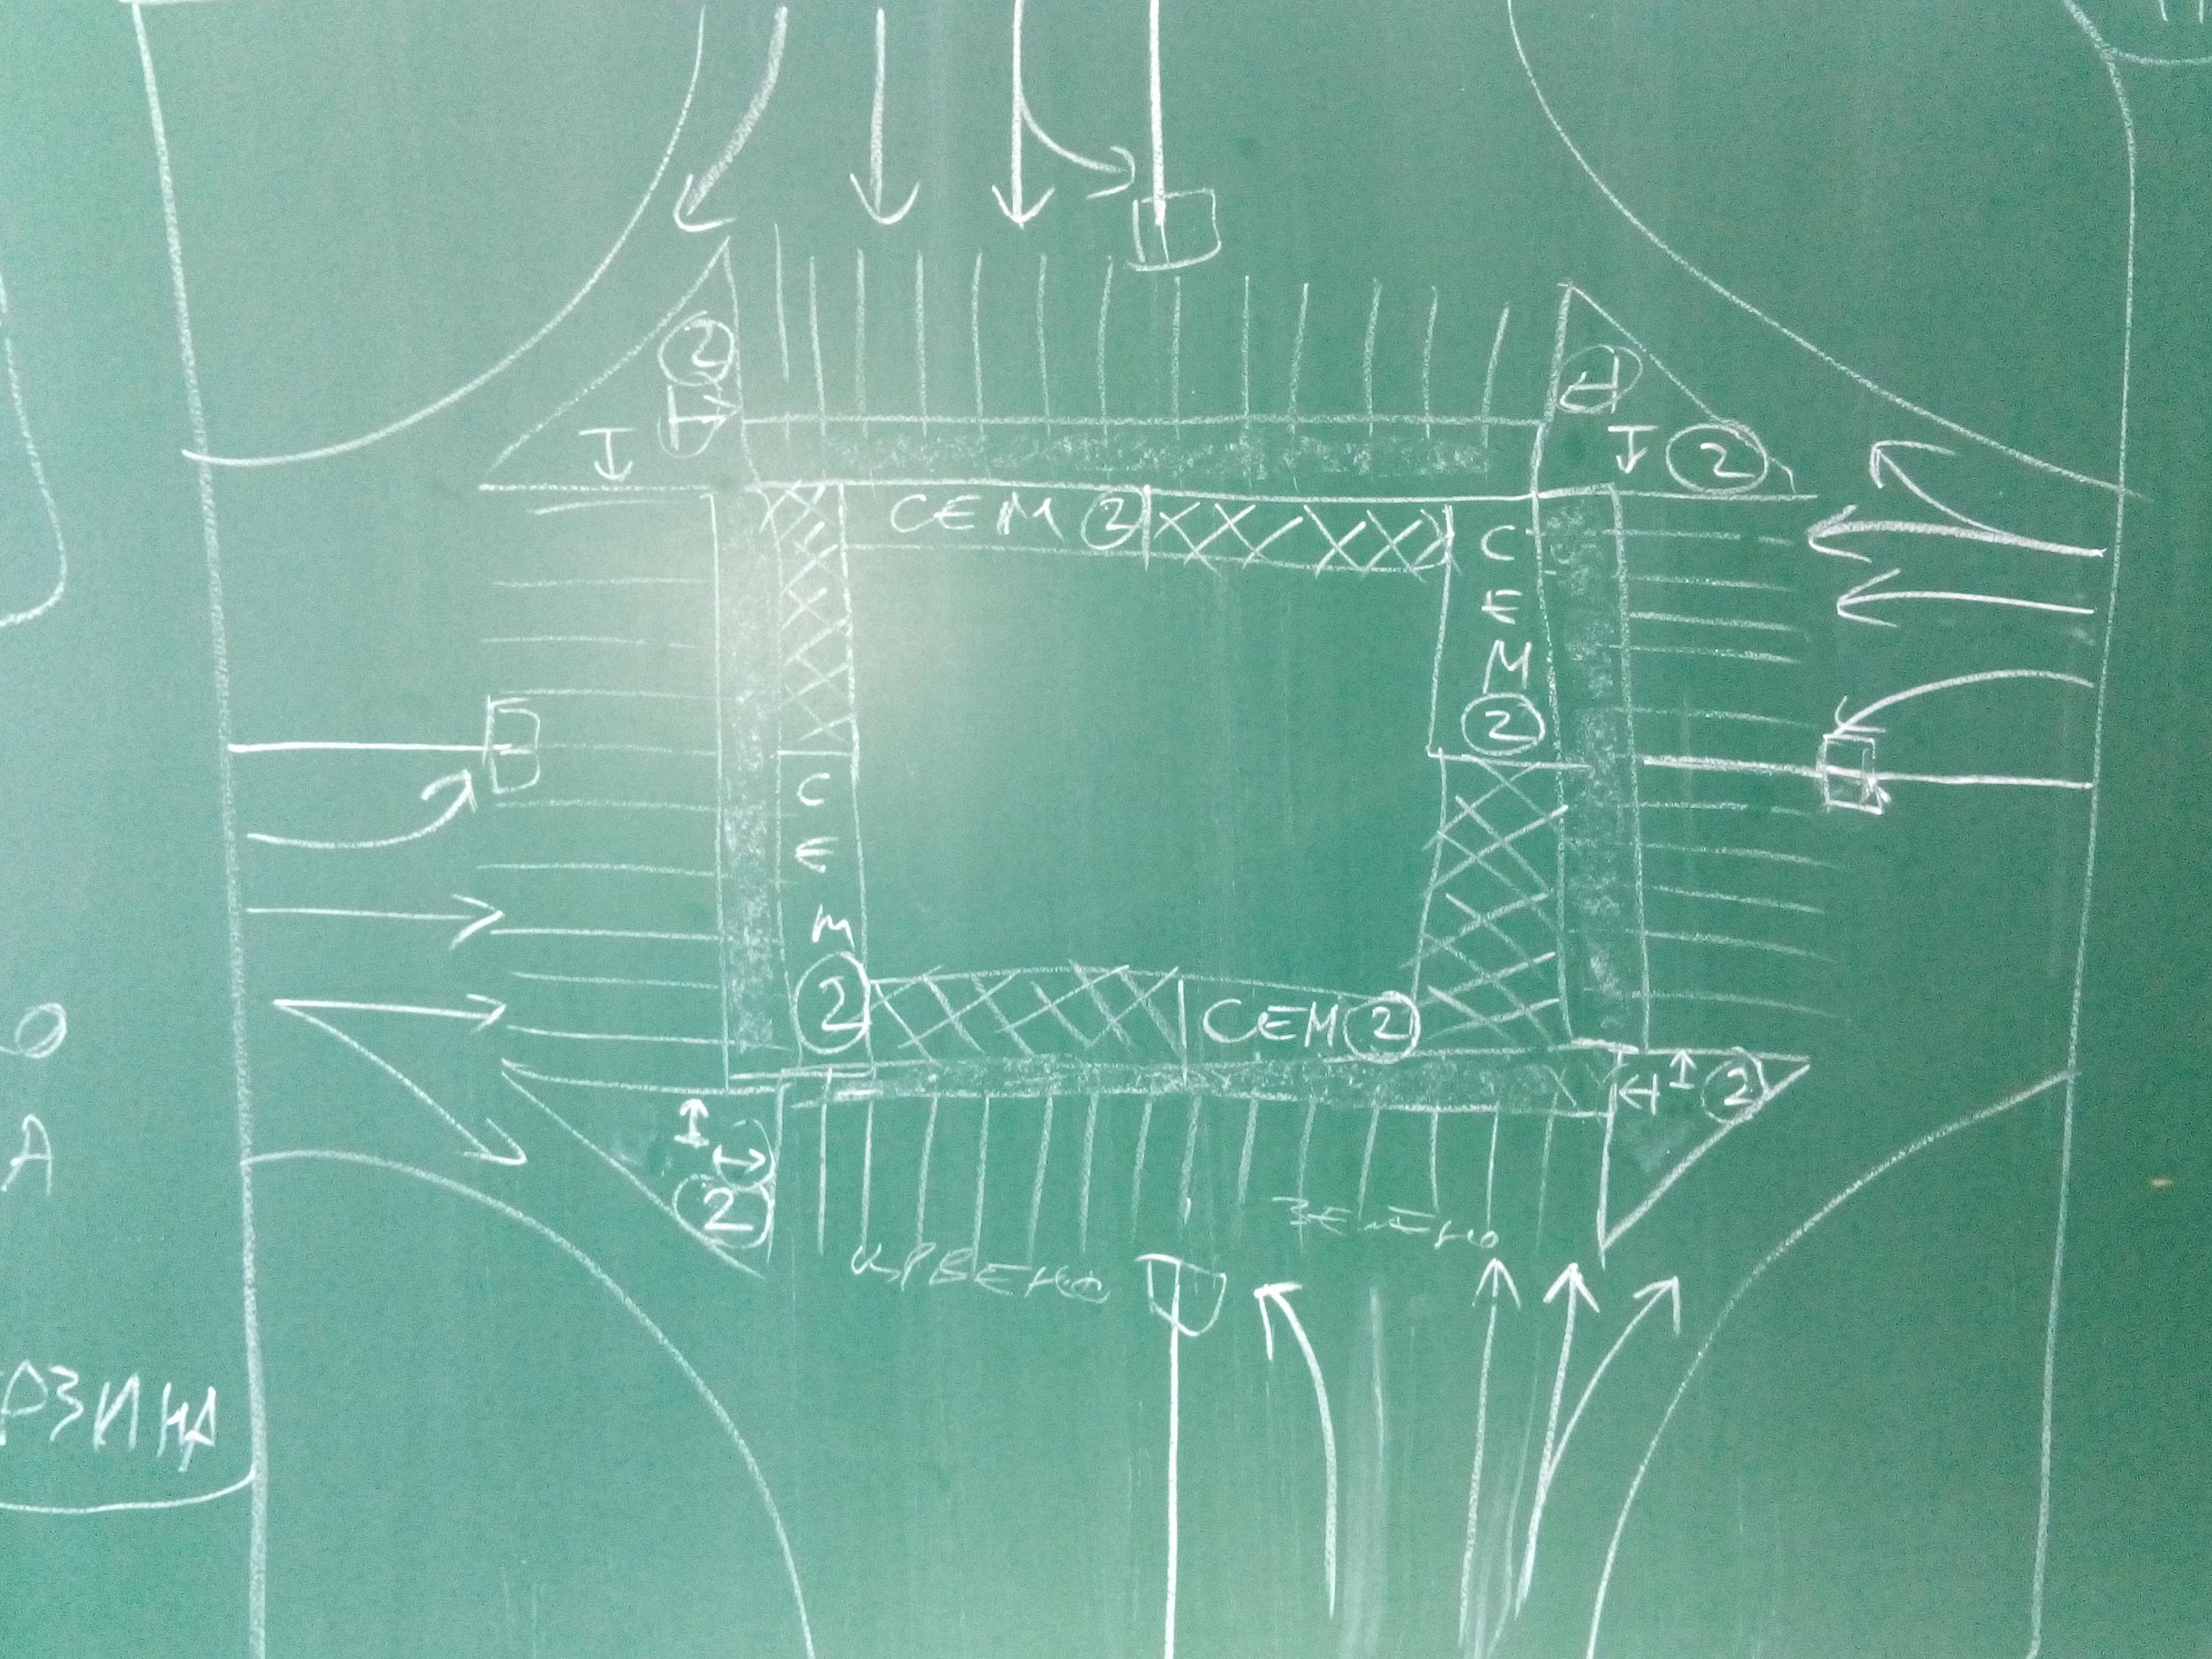 2
2
СЕМ 2
СЕМ 2
СЕМ 2
СЕМ 2
2
2
ЗЕЛЕНО
ЦРВЕНО
О
А
РЗИНА